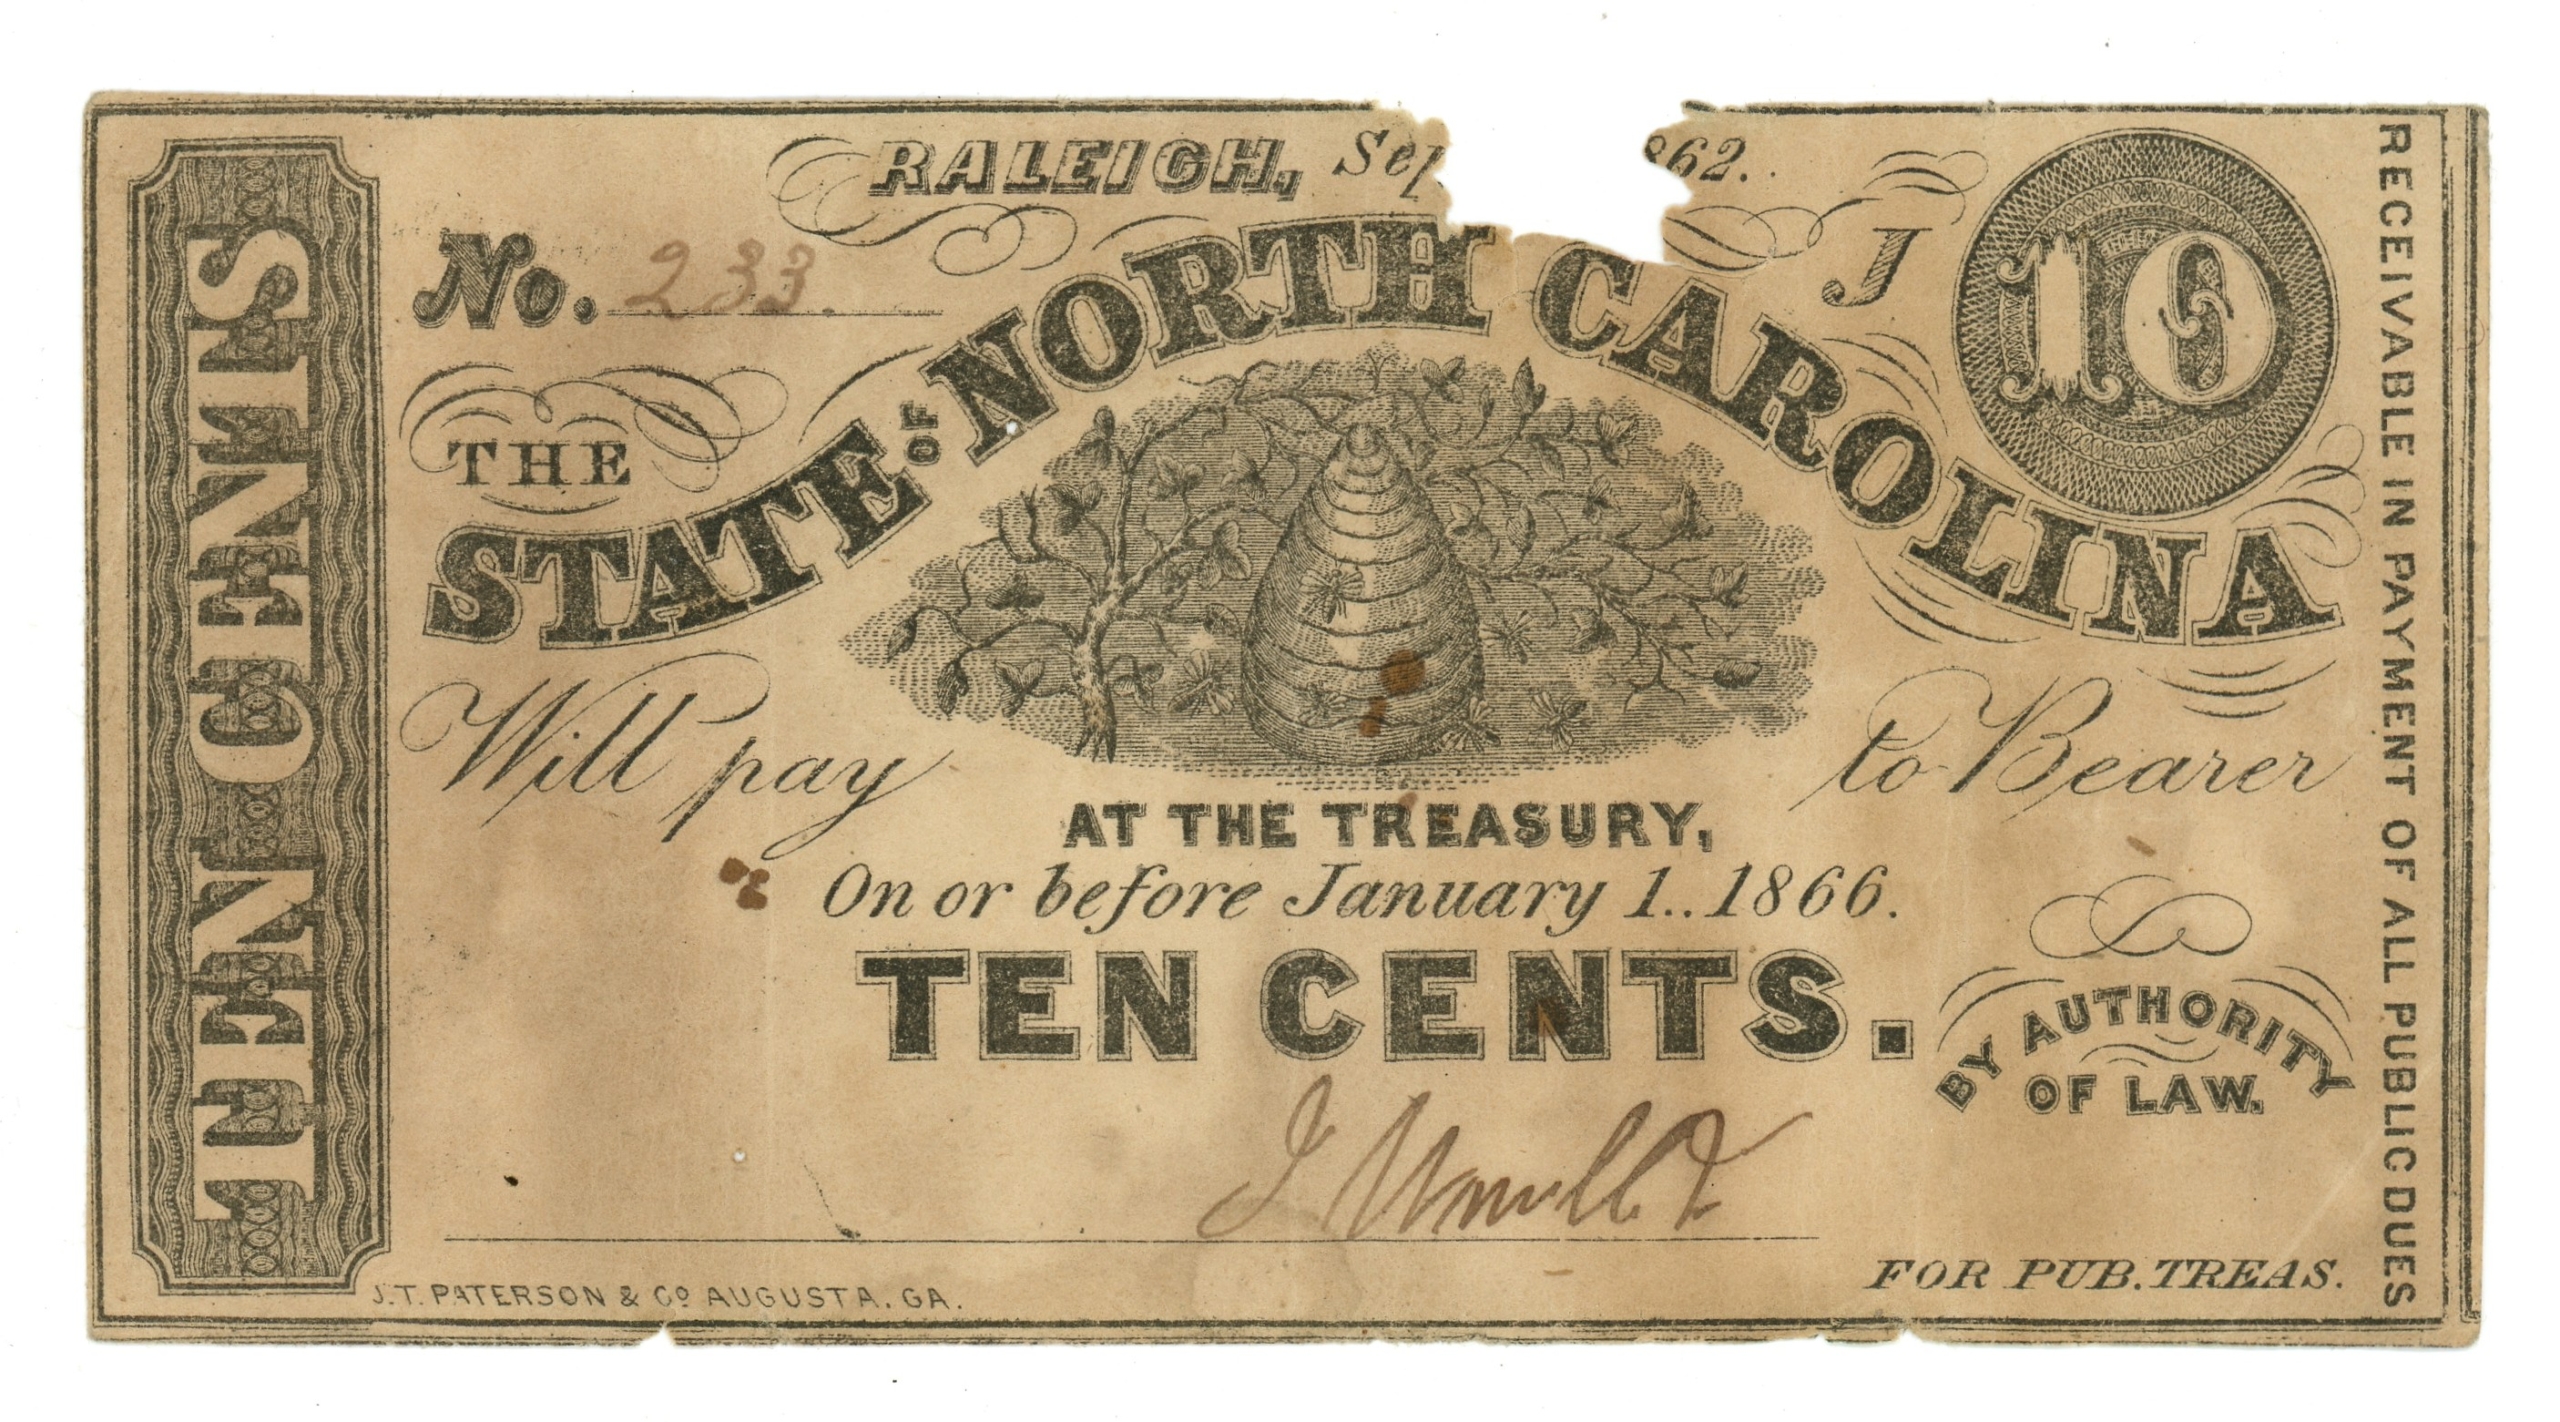 RALEIGH, Sep 862.
No. 233.
J
10
THE
STATE OF NORTH CAROLINA
Will pay to Bearer
AT THE TREASURY,
On or before January 1..1866.
TEN CENTS.
BY AUTHORITY
OF LAW.
FOR PUB. TREAS.
J.T. PATERSON & Co AUGUSTA, GA.
TEN CENTS
RECEIVABLE IN PAYMENT OF ALL PUBLIC DUES